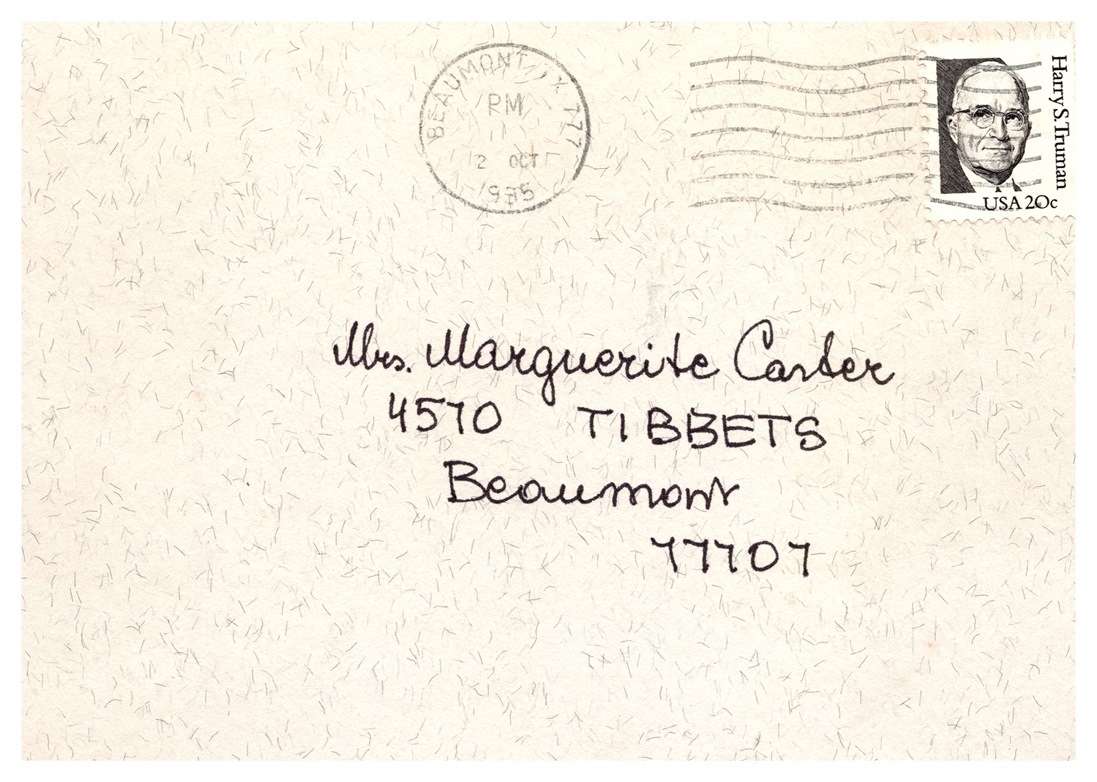 BEAUMONT, TX 777
PM
2 OCT
1985
Harry S. Truman
USA 20c
Mrs. Marguerite Carter
4570 TIBBETS
Beaumont
77707